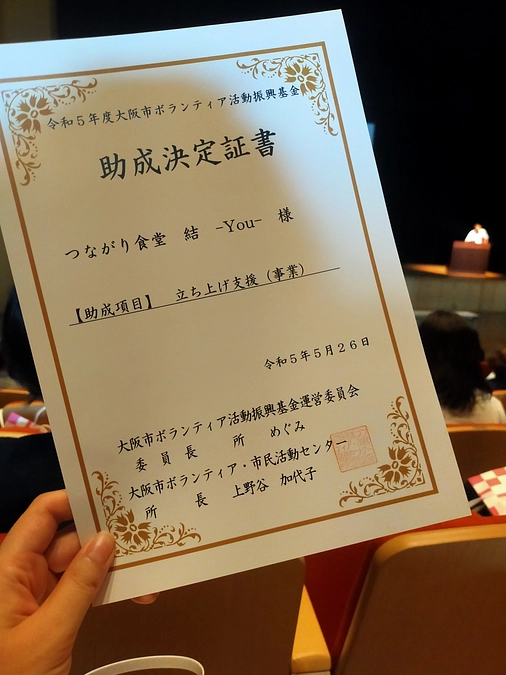 令和5年度大阪市ボランティア活動振興基金
助成決定証書
つながり食堂 結 -You- 様
【助成項目】 立ち上げ支援（事業）
令和5年5月26日
大阪市ボランティア活動振興基金運営委員会
委員長 所 めぐみ
大阪市ボランティア・市民活動センター
所長 上野谷 加代子